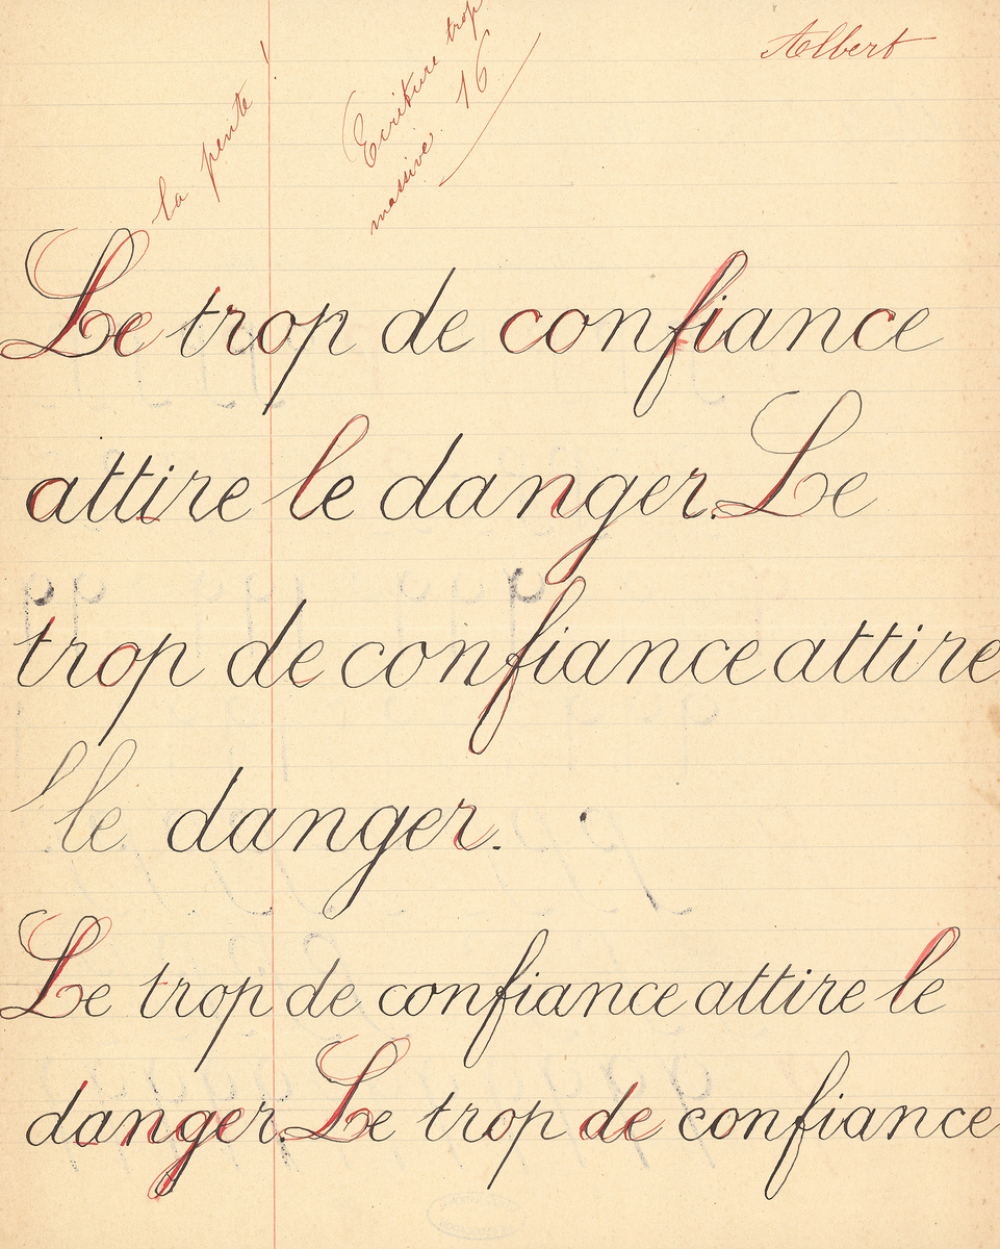 Albert
la pente !
Ecriture trop
massive. 16
Le trop de confiance
attire le danger. Le
trop de confiance attire
l le danger.
Le trop de confiance attire le
danger. Le trop de confiance